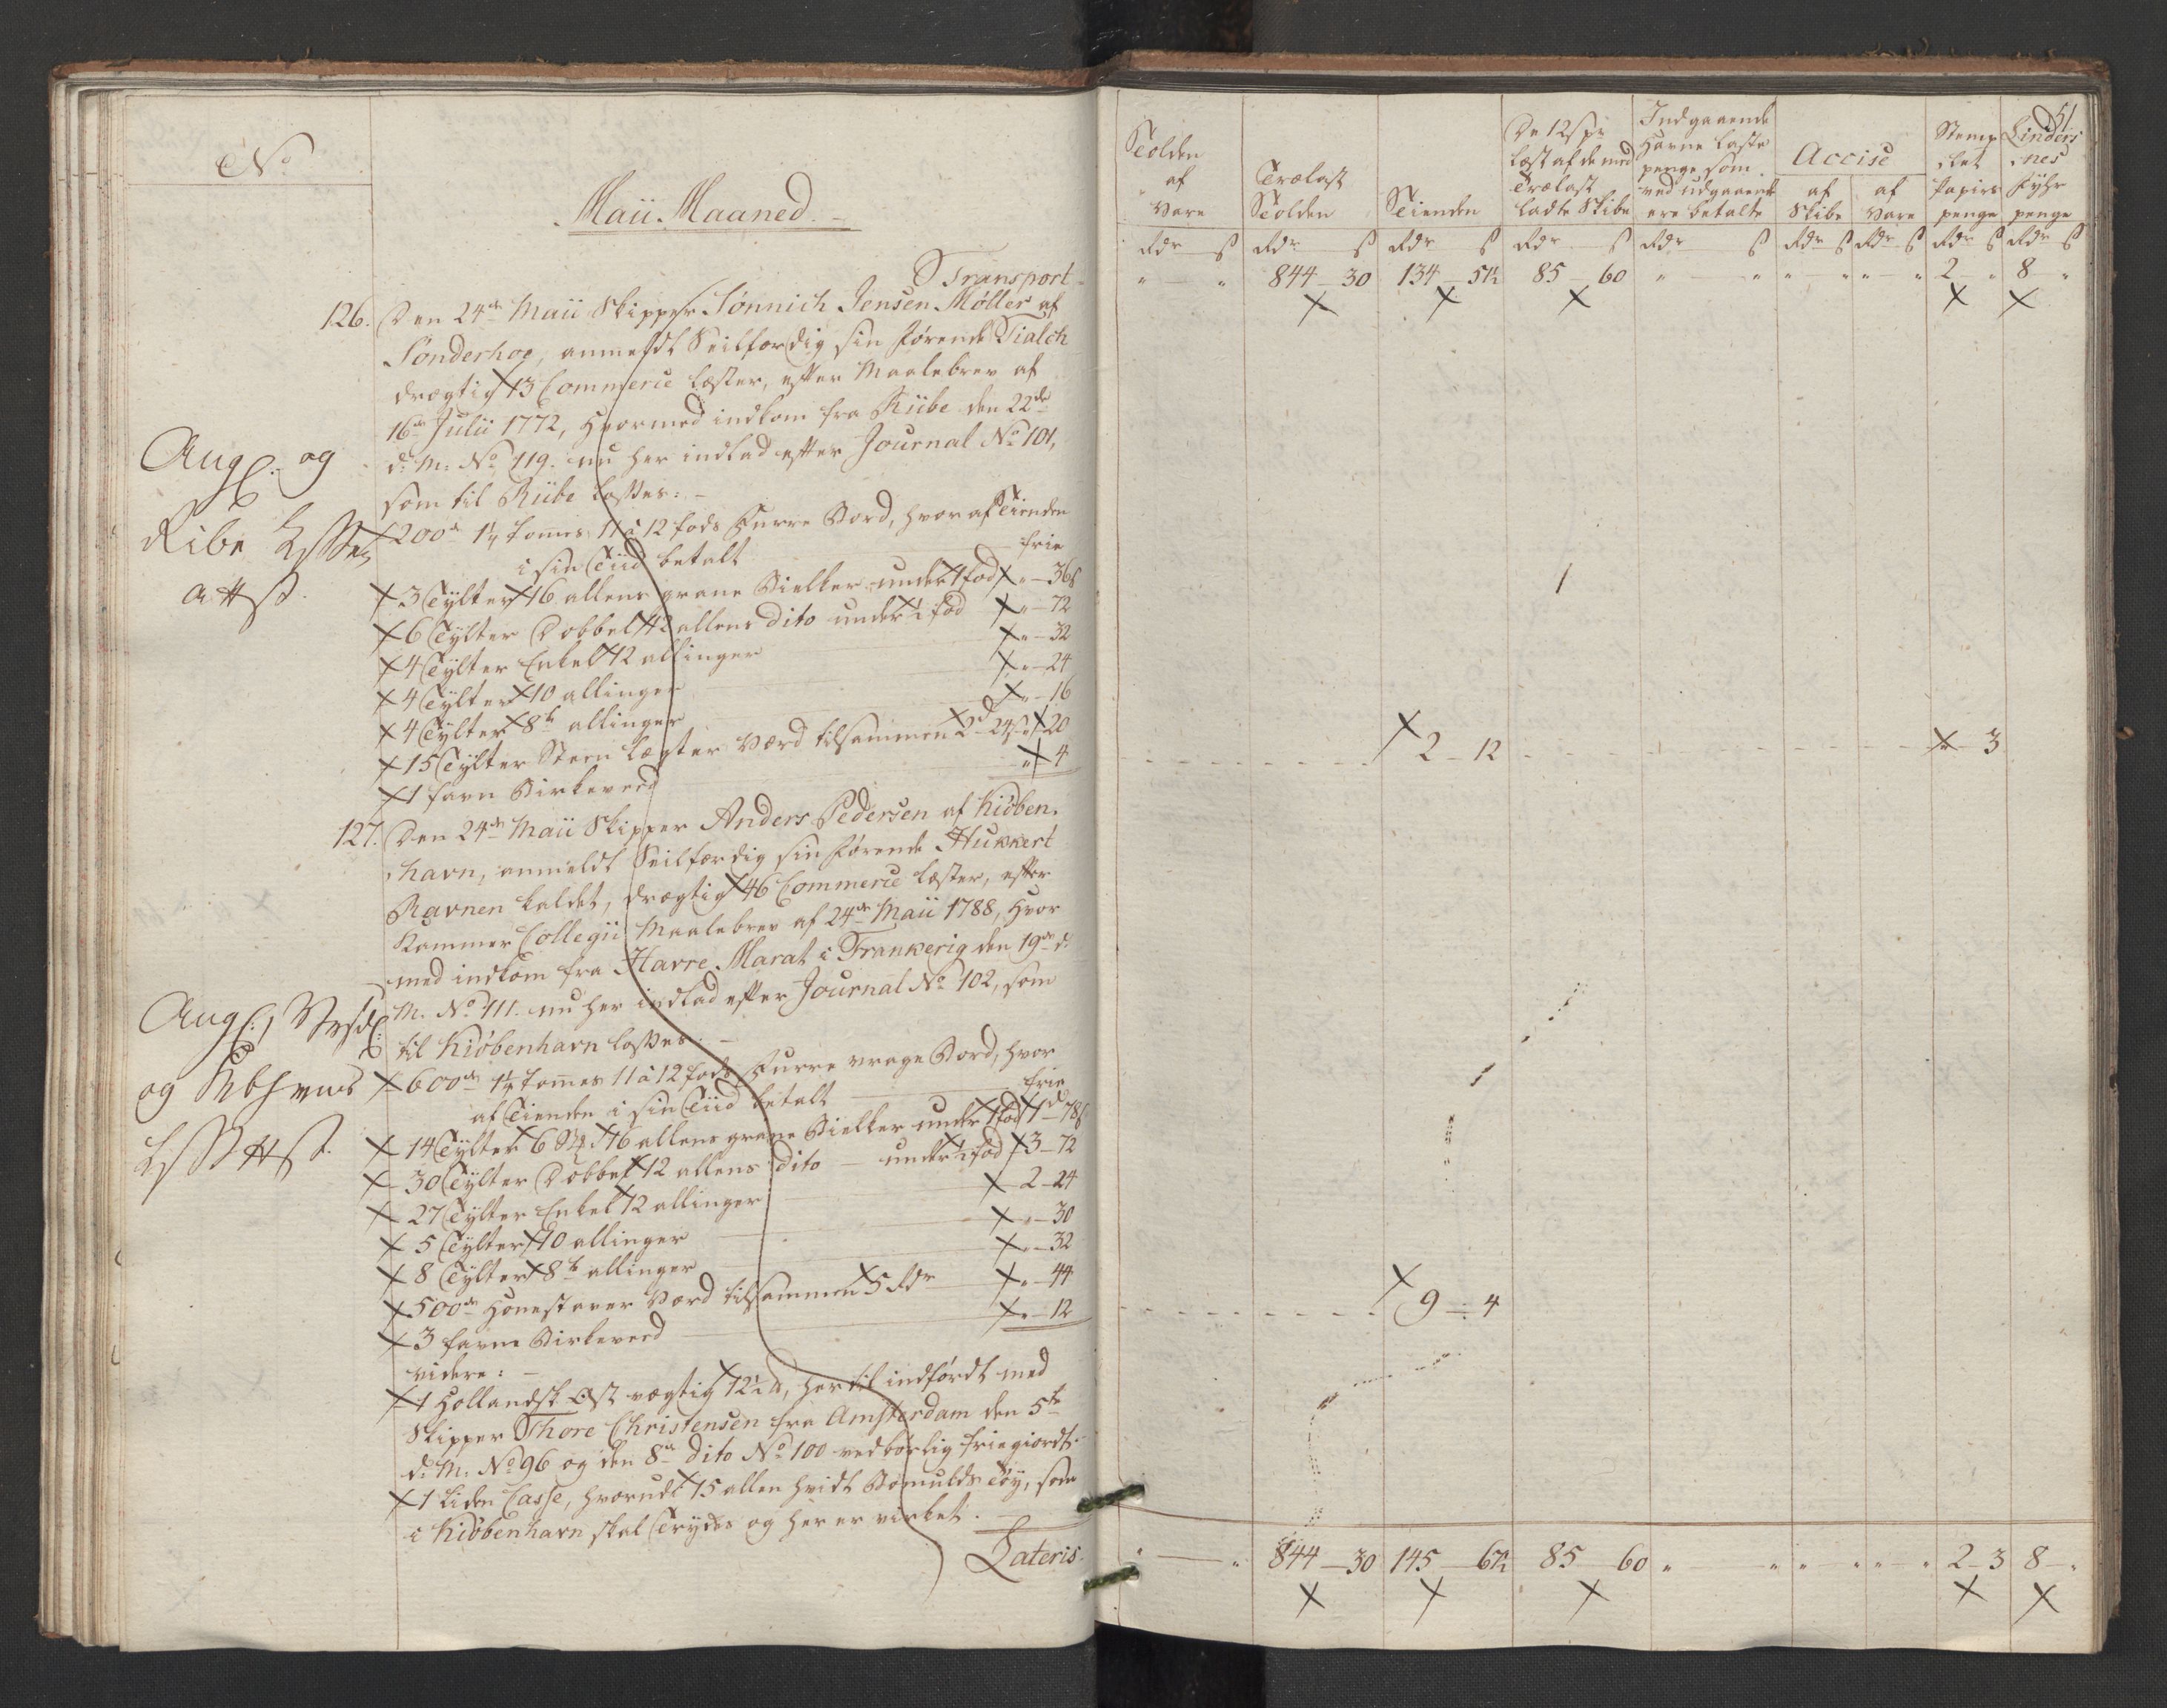 No
Maii Maaned.
Transport
126. Den 24de Maii Skipper Sönnich Jensen Møller af
Sönderhoe, anmeldt Seilfærdig sin förende Tialch
drægtig 13 Commerce Læster, efter Maalebrev af
16de Julii 1772, hvormed indkom fra Riibe den 22de
d: M: No 119. nu her indlad efter Journal No 101,
som til Riibe losses:
Angl: og
Ribe
att
200de 1¼ tommes 11 à 12 fods Furre Bord, hvor af Tienden
i sin Tiid betalt frie
3 Tylter 16 allens grane Bielker under 1 fod " 36 s
6 Tylter Dobbelt 12 allens dito under ½ fod " 72
4 Tylter Enkel 12 allinger " 32
4 Tylter 10 allinger " 24
4 Tylter 8te allinger " 16
15 Tylter Steen Lægter Værd tilsammen 2d 24s " 20
1 favn Birkeveed " 4
127. Den 24de Maii Skipper Anders Pedersen af Kiöben-
havn, anmeldt Seilfærdig sin förende Hukkert
Ravnen kaldet, drægtig 46 Commerce Læster, efter
Kammer Collegii Maalebrev af 24de Maii 1788, hvor
med indkom fra Havre Marat i Frankerig den 19de d:
M. No 111. nu her indlad efter Journal No 102, som
til Kiöbenhavn losses.
Angl:
og Kbhavns
600de 1¼ tommes 11 à 12 fods Furre vrage Bord, hvor
af Tienden i sin Tiid betalt frie
14 Tylter 6 St 16 allens grane Bielker under 1 fod 1d 78s
30 Tylter Dobbel 12 allens dito under ½ fod 3 - 72
27 Tylter Enkel 12 allinger 2 - 24
5 Tylter 10 allinger " - 30
8 Tylter 8te allinger " - 32
500de Hönestaver Værd tilsammen 5 Rdr " - 44
3 favne Birkeveed " - 12
videre:
1 Hollandsk Ost vægtig 12½ ℔, her til indfördt med
Skipper Thore Christensen fra Amsterdam den 5te
d: M: No 96 og den 8de dito No 100 vedbörlig friegiordt.
1 liden Casse, hvorudi 15 allen hvidt Bomulds Töy, som
i Kiöbenhavn skal Trykes og her er virket.
Lateris
51
Tolden af Vare
Trælast Tolden
Tienden
De 12 s pr Læst af de med Trælast ladte Skibe
Indgaaende Havne Laste penge som ved udgaaende ere betalte
Accise
af Skibe
af Vare
Stemplet Papiirs penge
Linders-nes Fyhr penge
Rdr s Rdr s Rdr s Rdr s Rdr s Rdr s Rdr s Rdr s Rdr s
" — " 844 — 30 134 — 51½ 85 — 60 " " " " " " 2 — " 8 — "
2 — 12 " — 3
9 — 4
" — " 844 — 30 145 — 67½ 85 — 60 " " " " " " 2 — 3 8 — "